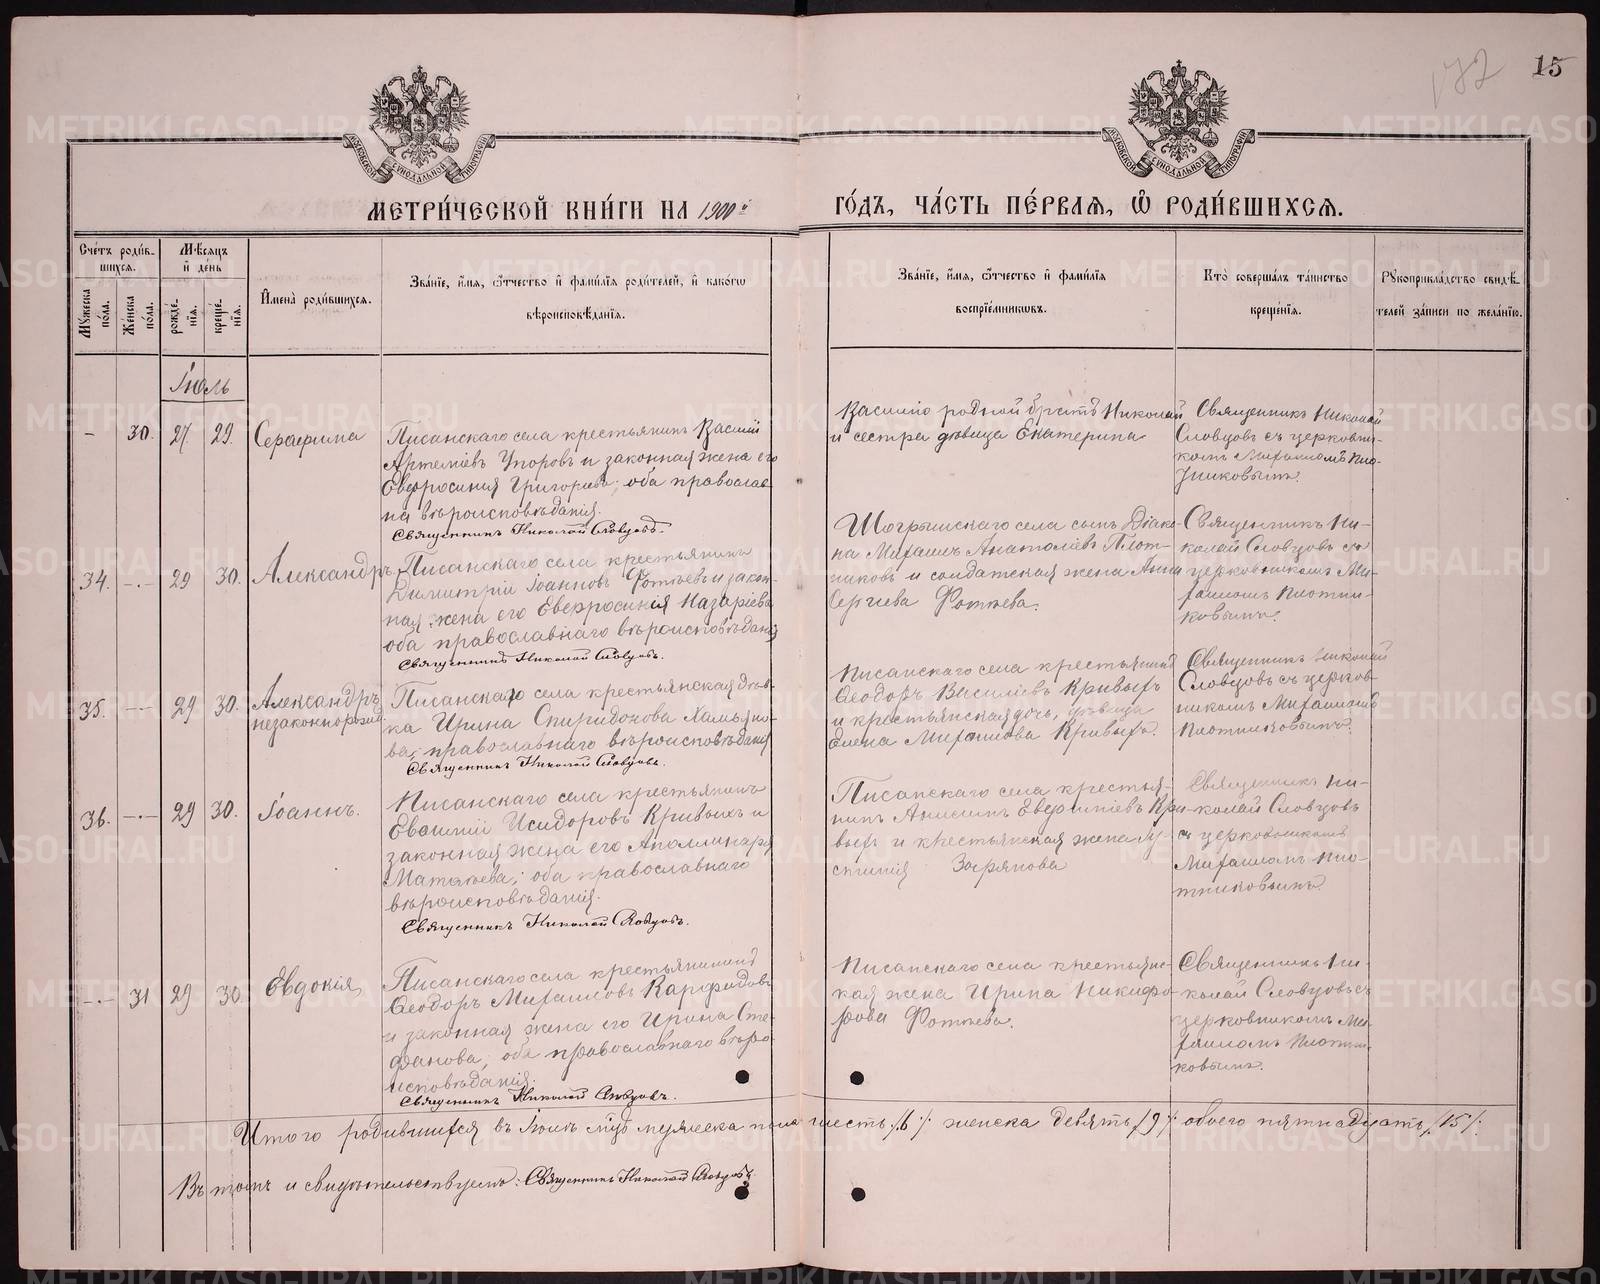 172
15
МОСКОВСКОЙ СѴНОДАЛЬНОЙ ТИПОГРАФІИ
МОСКОВСКОЙ СѴНОДАЛЬНОЙ ТИПОГРАФІИ
МЕТРИ́ЧЕСКОЙ КНИ́ГИ НА 1900й
ГО́ДЪ, ЧА́СТЬ ПЕ́РВАѦ, Ѡ РОДИ́ВШИХСѦ.
Сче́тъ роди́в-
шихсѧ.
Му́жеска по́ла.
Же́нска по́ла.
Мѣ́сѧцъ
и де́нь
рожде́-
нїѧ.
креще́-
нїѧ.
Имена̀ роди́вшихсѧ.
Зва́нїе, и́мѧ, ѻ҆́тчество и҆ фами́лїѧ роди́телей, и҆ како́гѡ
вѣроисповѣ́данїѧ.
Зва́нїе, и́мѧ, ѻ҆́тчество и҆ фами́лїѧ
воспрїе́мникѡвъ.
Кто̀ соверша́лъ та́инство
креще́нїѧ.
Рꙋкоприкла́дство свидѣ́-
телей за́писи по жела́нїю.
Іюль
- 30. 27 29. Серафима
Писанскаго села крестьянинъ Василій
Артеміевъ Упоровъ и законная жена его
Евфросинія Григорьева; оба православ-
на вѣроисповѣданія.
Священникъ Николай Словцовъ.
Василію родной братъ Николай
и сестра дѣвица Екатерина
Священникъ Николай
Словцовъ съ церковни-
комъ Михаиломъ Пло-
тниковымъ.
34. -.- 29 30. Александръ.
Писанскаго села крестьянинъ
Димитрій Іоанновъ Фотѣевъ и закон-
ная жена его Евфросинія Назаріева
оба православнаго вѣроисповѣданія
Священникъ Николай Словцовъ.
Шогрышскаго села сынъ Діако-
на Михаилъ Анатоліевъ Плот-
никовъ и солдатская жена Анна
Сергіева Фотѣева.
Священникъ Ни-
колай Словцовъ съ
церковникомъ Ми-
хаиломъ Плотни-
ковымъ.
35. -- 29 30. Александръ
незаконнорожд.
Писанскаго села крестьянская дѣв-
ка Ирина Спиридонова Халъяпо-
ва; православнаго вѣроисповѣданія
Священникъ Николай Словцовъ.
Писанскаго села крестьянинъ
Ѳеодоръ Василіевъ Кривыхъ
и крестьянская дочь, дѣвица
Елена Михаилова Кривыхъ.
Священникъ Николай
Словцовъ съ церков-
никомъ Михаиломъ
Плотниковымъ.
36. -.- 29 30. Іоаннъ.
Писанскаго села крестьянинъ
Евѳимій Исидоровъ Кривыхъ и
законная жена его Аполлинарія
Матѳѣева; оба православнаго
вѣроисповѣданія.
Священникъ Николай Словцовъ.
Писанскаго села крестья-
нинъ Анисимъ Евфиміевъ Кри-
выхъ и крестьянская жена
Загрянова
Священникъ Ни-
колай Словцовъ
съ церковникомъ
Михаиломъ Пло-
тниковымъ.
-.- 31 29 30. Евдокія,
Писанскаго села крестьянинъ
Ѳеодоръ Михаиловъ Карфидовъ
и законная жена его Ирина Сте-
фанова, оба православнаго вѣро-
исповѣданія.
Священникъ Николай Словцовъ.
Писанскаго села крестьянс-
кая жена Ирина Никифо-
рова Фотѣева.
Священникъ Ни-
колай Словцовъ съ
церковникомъ Ми-
хаиломъ Плотни-
ковымъ.
Итого родившихся въ Іюлѣ мцѣ мужеска пола шесть /6/. женска девять /9/. обоего пятнадцать /15/.
Въ томъ и свидѣтельствуемъ: Священникъ Николай Словцовъ.
METRIKI.GASO-URAL.RU